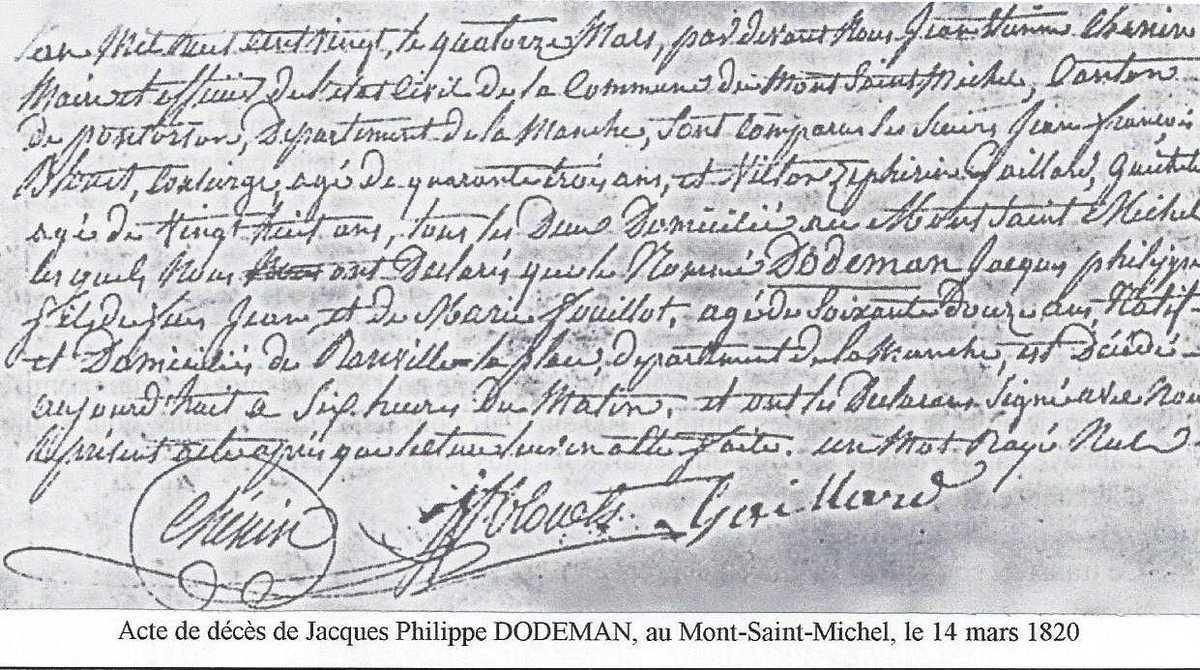 L'an Mil huit cent vingt, le quatorze Mars, pardevant Nous Jean Etienne Chenin
Maire et officier de l'etat Civil de la Commune du Mont Saint Michel, Canton
de pontorson, Departement de la Manche, sont comparus les sieurs Jean françois
Blouet, concierge, agé de quarante trois ans, et Zephirin Gaillard, Guichet
agé de vingt huit ans, tous les Deux Domiciliés au Mont Saint Michel
les quels Nous ont Declarés que le Nommé Dodeman Jacques philippe
fils de feu Jean et de Marie Fouillot, agé de Soixante Douze ans, Natif
et Domiciliés de Rauville-la place, departement de la Manche, est Décédé
aujourd'huit a Six heures Du Matin, et ont les Declarans Signé avec Nous
le présent acte après que lecture leur en a été faite. un Mot Rayé Nul
Chénin Blouet Gaillard
Acte de décès de Jacques Philippe DODEMAN, au Mont-Saint-Michel, le 14 mars 1820